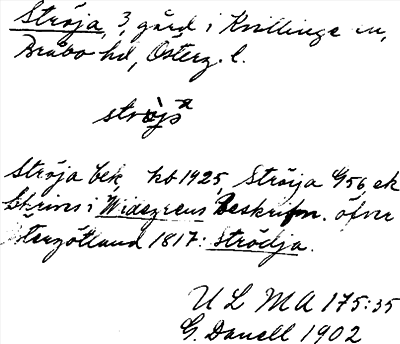 Ströja, 3, gård i Kvillinge sn,
Bråbo hd, Österg. l.
ströja
Ströja bek, hd 1925, Ströija 4/56, ek
Skrives i Widegrens Beskrifn. öfver
Östergötland 1817: Strödja.
U L M A 175:35
G. Danell 1902